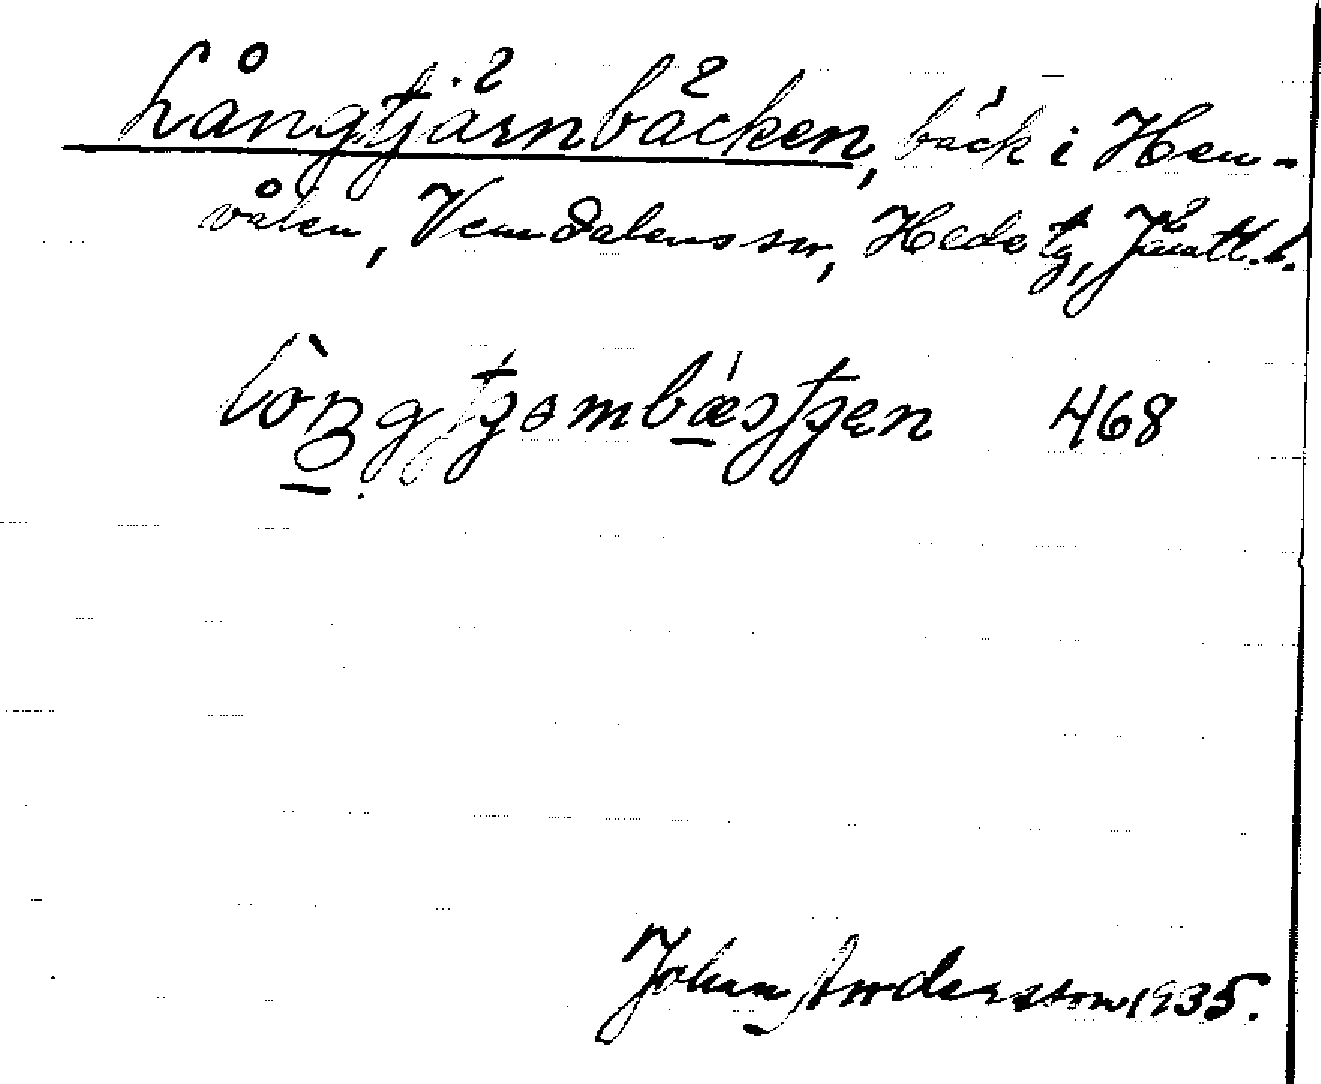 Långtjärnbäcken, bäck i Hem-
vålen, Vemdalens sn, Hede tg, Jämtl. l.
468
Johan Andersson 1935.